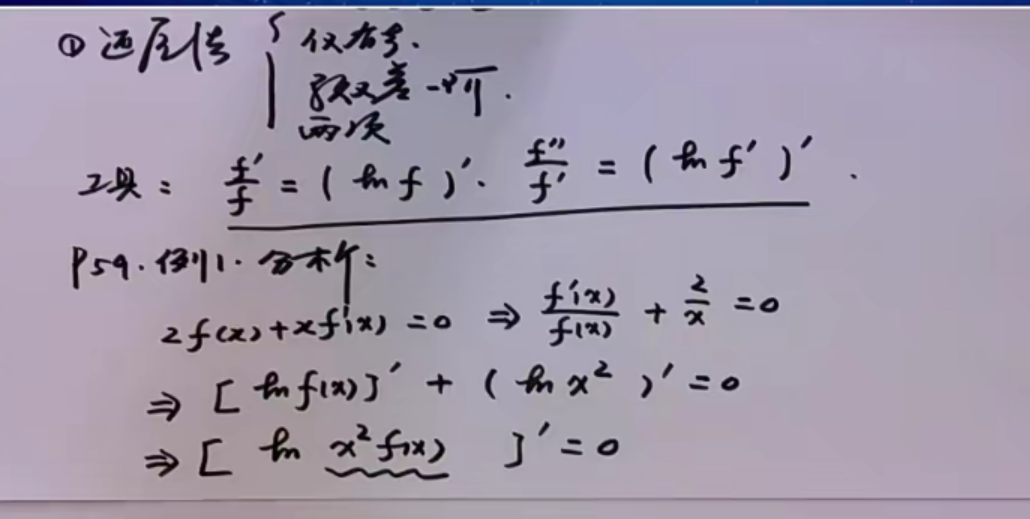 ① 还原法 { 仅有ξ.
导数差一阶.
两项
工具: f'/f = (ln f)'. f''/f' = (ln f')'.
P59. 例1. 分析:
2f(x)+xf'(x)=0 ⇒ f'(x)/f(x) + 2/x = 0
⇒ [ln f(x)]' + (ln x²)' = 0
⇒ [ln x²f(x)]' = 0